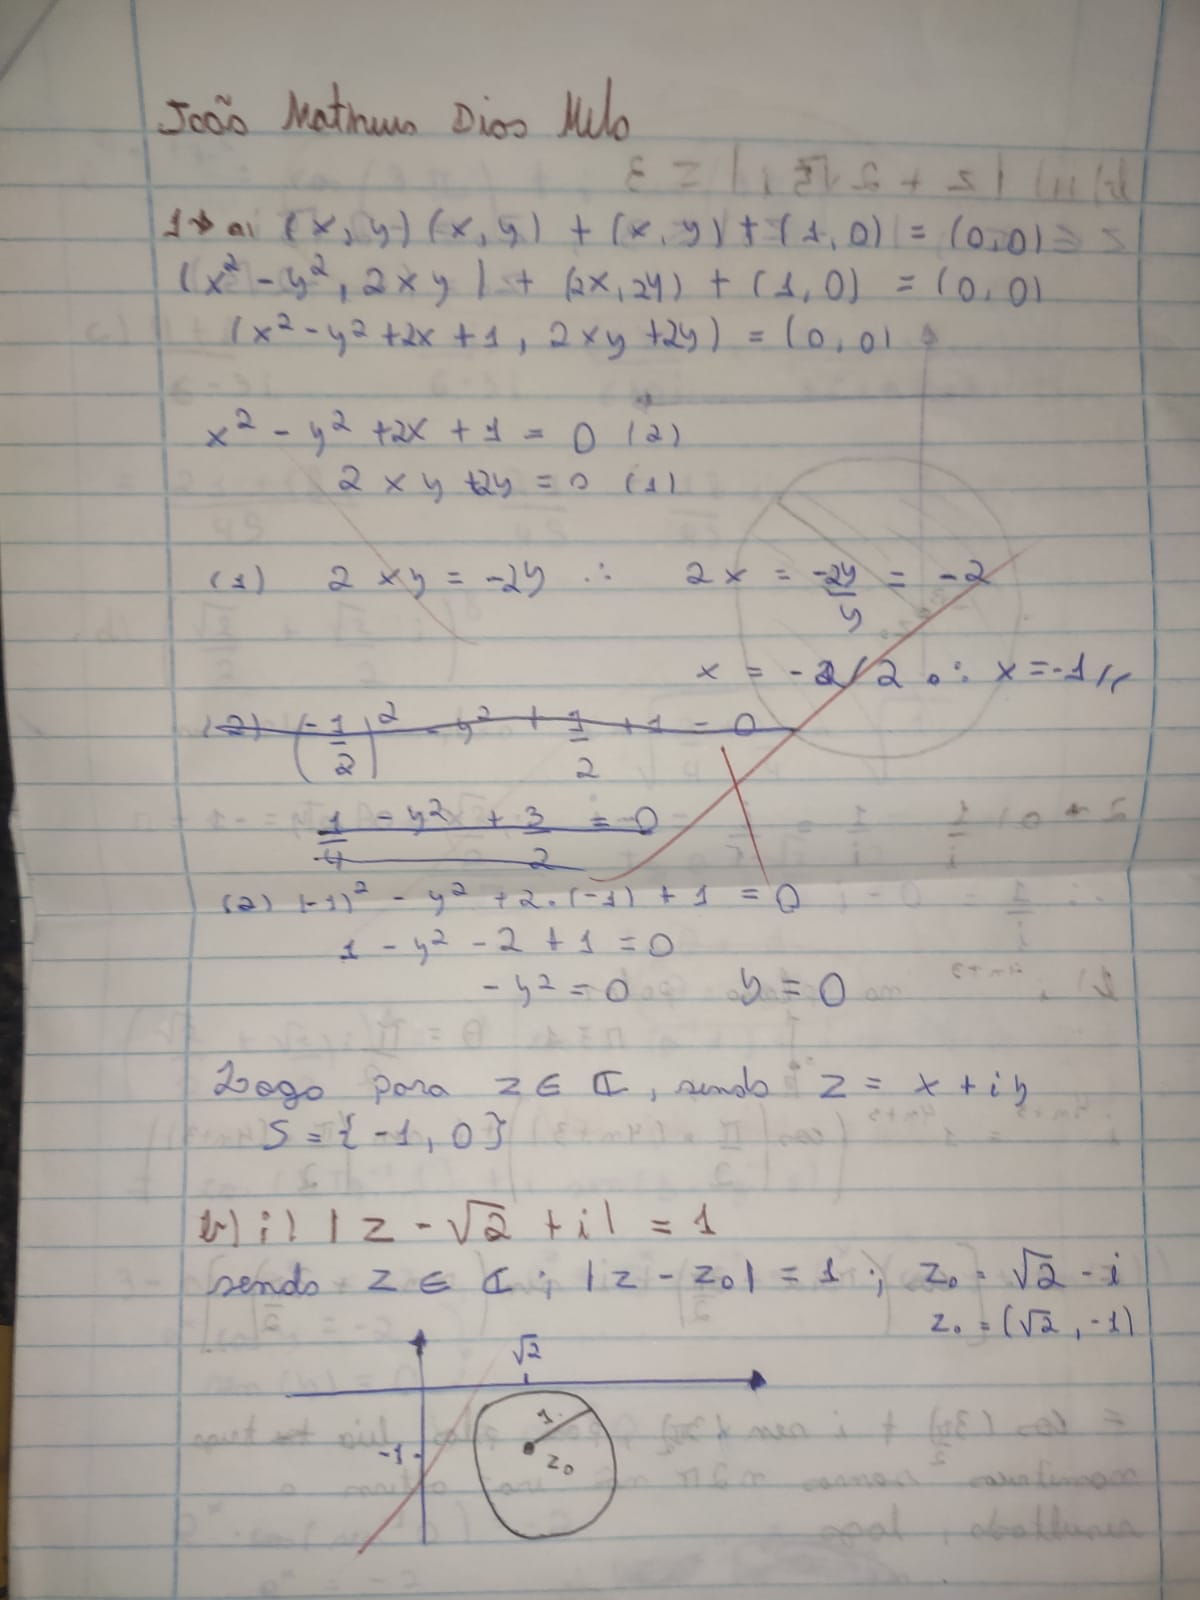 João Matheus Dias Melo
1→ a) (x, y) (x, y) + (x, y) + (1, 0) = (0, 0)
(x² - y², 2xy) + (2x, 2y) + (1, 0) = (0, 0)
(x² - y² + 2x + 1, 2xy + 2y) = (0, 0)
x² - y² + 2x + 1 = 0 (2)
2xy + 2y = 0 (1)
(1) 2xy = -2y ∴ 2x = -2y/y = -2
x = -2/2 ∴ x = -1//
(2) (-1/2)² - y² + 1/2 + 1 = 0
1/4 - y² + 3/2 = 0
(2) (-1)² - y² + 2.(-1) + 1 = 0
1 - y² - 2 + 1 = 0
-y² = 0 y = 0
Logo para z ∈ ℂ, sendo z = x + iy
S = {-1, 0}
b) i) |z - √2 + i| = 1
sendo z ∈ ℂ ; |z - z₀| = 1 ; z₀ = √2 - i
z₀ = (√2, -1)
√2
1
-1
z₀